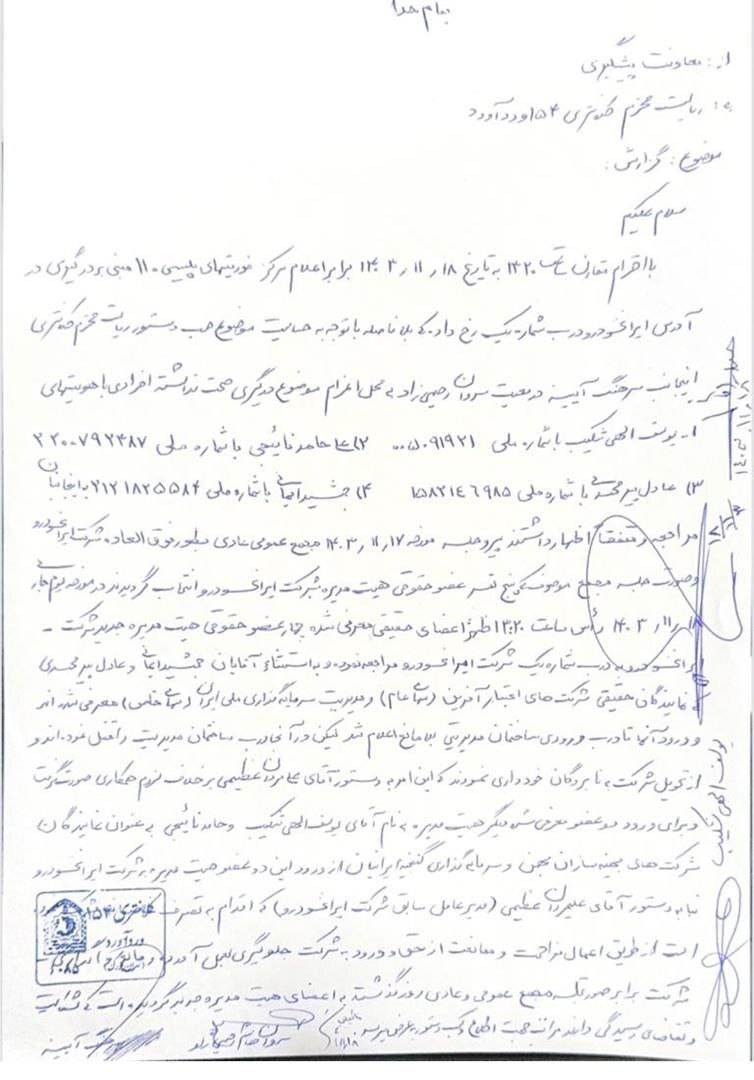 بنام خدا
از: معاونت پیشگیری
به: ریاست محترم کلانتری ۱۵۴ وردآورد
موضوع: گزارش:
سلام علیکم
با احترام ساعت ۱۳۲۰ به تاریخ ۱۴۰۳/۱۱/۱۸ برابر اعلام مرکز فوریتهای پلیسی ۱۱۰ مبنی بر درگیری در
آدرس ایرانخودرو درب شماره یک رخ داد که بلافاصله با توجه به حساسیت موضوع حسب دستور ریاست محترم کلانتری
اینجانب سرهنگ آیینه در معیت سروان رحیمی راد به محل اعزام موضوع درگیری صحت نداشته افرادی با هویتهای
۱- یوسف الهی شکیب با شماره ملی ۰۰۵۰۹۱۹۲۱ ۲) حامد نائیجی با شماره ملی ۲۲۰۰۷۹۲۴۸۷
۳) عادل پیرمحمدی با شماره ملی ۱۵۸۲۱۴۶۹۸۵ ۴) جمشید ایمانی با شماره ملی ۲۱۲۱۸۲۵۵۸۴ به اینجانبان
مراجعه و متفقاً اظهار داشتند پیرو جلسه مورخه ۱۴۰۳/۱۱/۱۷ مجمع عمومی عادی بطور فوق العاده شرکت ایرانخودرو
و صورت جلسه مجمع موصوف که پنج نفر عضو حقوقی هیت مدیره شرکت ایرانخودرو انتخاب گردیدند در مورخه
۱۴۰۳/۱۱/۱۸ رأس ساعت ۱۳:۲۰ ظهر اعضای حقیقی معرفی شده چهار عضو حقوقی هیت مدیره جدید شرکت -
ایرانخودرو به درب شماره یک شرکت ایرانخودرو مراجعه نموده و به استثناء آقایان جمشید ایمانی و عادل پیرمحمدی
که نمایندگان حقیقی شرکت های اعتبار آفرین (سهامی عام) و مدیریت سرمایه گذاری ملی ایران (سهامی خاص) معرفی شده اند
و ورود آنها تا درب ورودی ساختمان مدیریتی بلامانع اعلام شد لیکن در آنجا درب ساختمان مدیریت را قفل نموده اند و
از تحویل شرکت به نامبردگان خودداری نمودند که این امر به دستور آقای علیمردان عظیمی بر خلاف لزوم همکاری صورت گرفت
و برای ورود دو عضو معرفی شده دیگر هیت مدیره به نام آقای یوسف الهی شکیب و حامد نائیجی به عنوان نمایندگان
شرکت های سرمایه گذاری گنجینه ایرانیان از ورود این دو عضو هیت مدیره به شرکت ایرانخودرو
بنا به دستور آقای علیمردان عظیمی (مدیرعامل سابق شرکت ایرانخودرو) که اقدام به تصرف
است از طریق اعمال مزاحمت و ممانعت از حق و ورود به شرکت جلوگیری بعمل آمده و
شرکت برابر صورتجلسه مجمع عمومی عادی روز گذشته به اعضای هیت مدیره جدید گردیده است که شکایت
و تقاضای رسیدگی دارند مراتب جهت اطلاع و کسب دستور به عرض میرسد
سروان رحیمی راد
سرهنگ آیینه
کلانتری ۱۵۴
وردآورد
یوسف الهی شکیب
۱۴۰۳/۱۱/۱۸